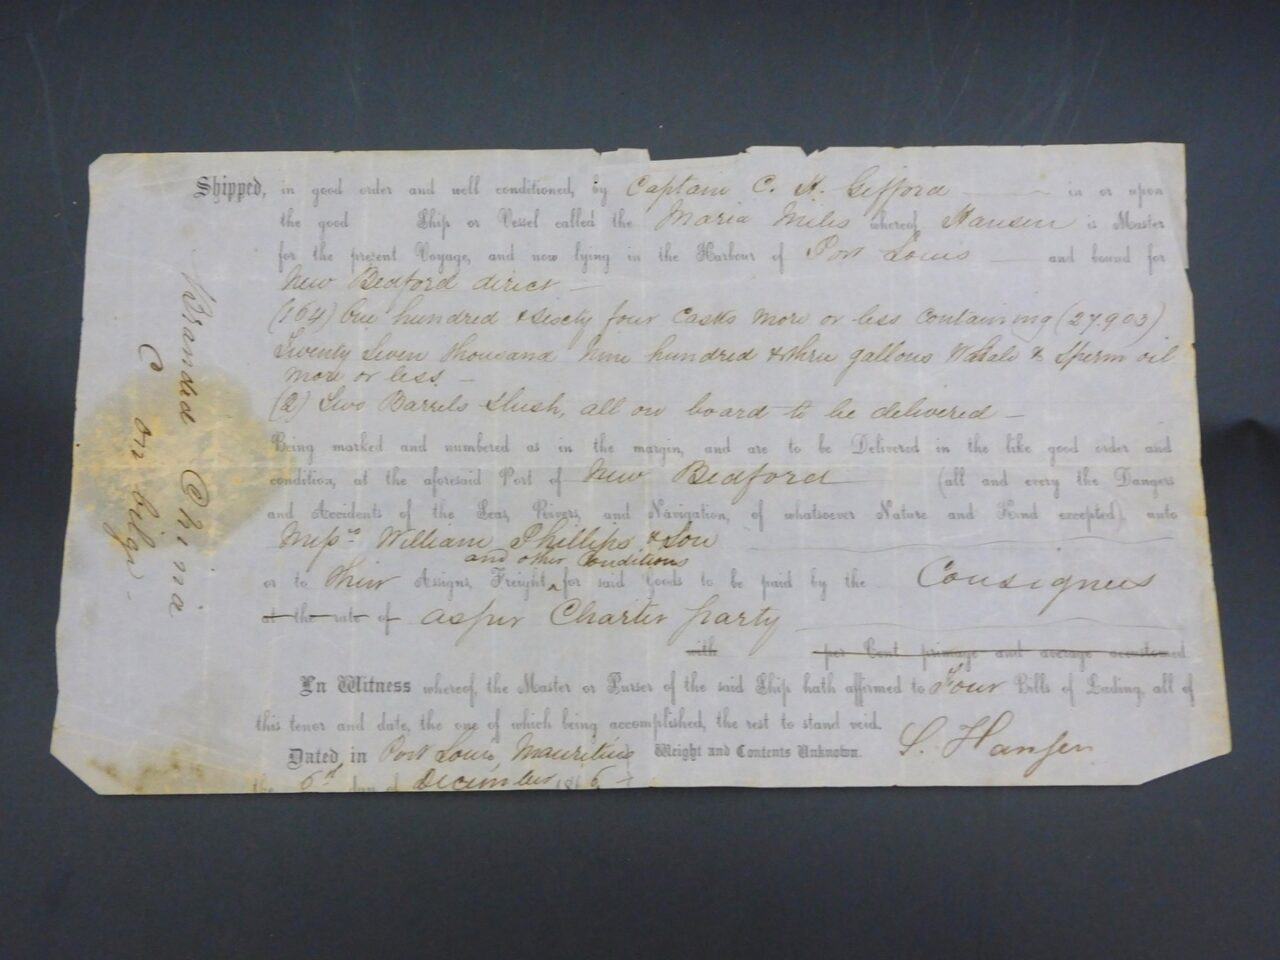 Shipped, in good order and well conditioned, by Captain C. H. Gifford in or upon
the good Ship or Vessel called the Maria Miles whereof Hansen is Master
for the present Voyage, and now lying in the Harbour of Port Louis and bound for
New Bedford direct —
(164) One hundred & sixty four Casks more or less Containing (27.903)
Twenty Seven thousand Nine hundred & three gallons Whale & Sperm oil
more or less —
(2) Two Barrels Slush, all on board to be delivered —
Being marked and numbered as in the margin, and are to be Delivered in the like good order and
condition, at the aforesaid Port of New Bedford (all and every the Dangers
and Accidents of the Seas, Rivers, and Navigation, of whatsoever Nature and Kind excepted), unto
Messrs William Phillips & Son
and other Conditions
or to their Assigns, Freight for said Goods to be paid by the Consignees
at the rate of as per Charter party
with per Cent primage and average accustomed
In Witness whereof, the Master or Purser of the said Ship hath affirmed to Four Bills of Lading, all of
this tenor and date, the one of which being accomplished, the rest to stand void.
Dated in Port Louis, Mauritius Weight and Contents Unknown. S. Hansen
the day of December 186
Branded China
C on bilge